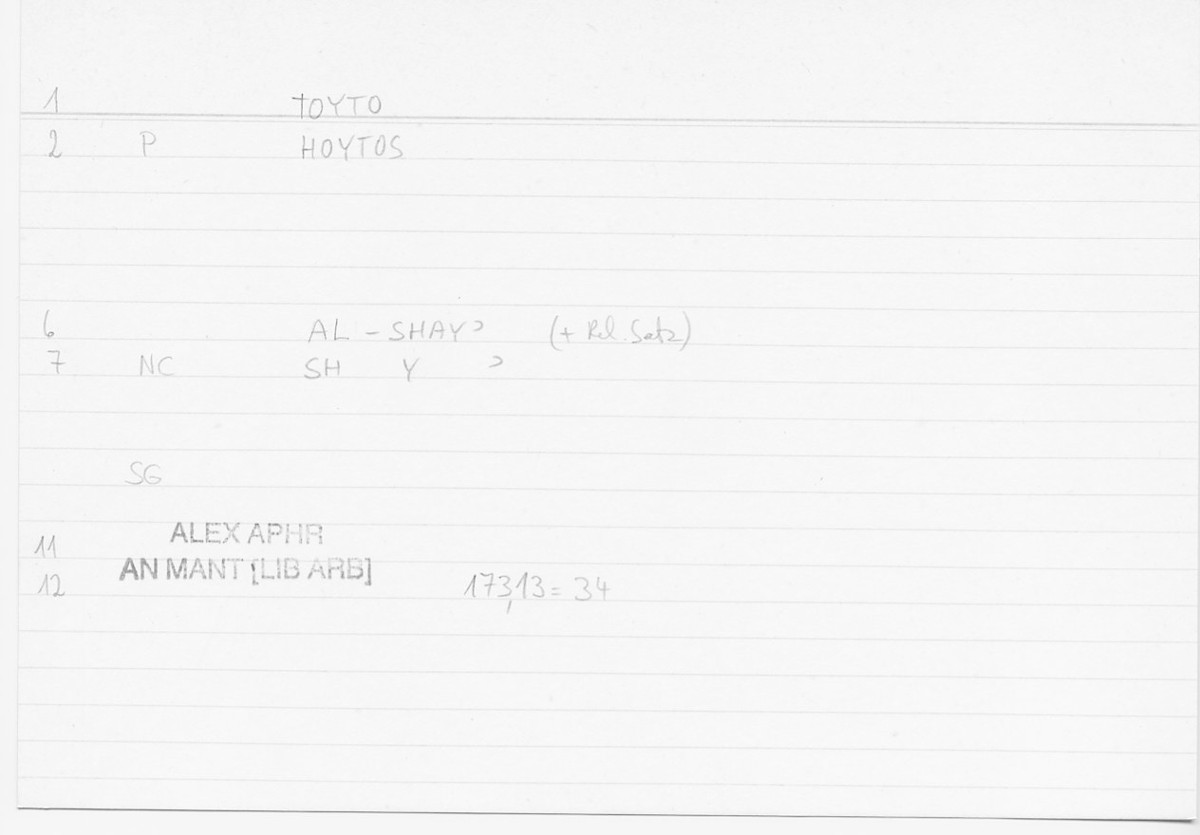 1 TOYTO
2 P HOYTOS
6 AL-SHAYʾ (+ Rel. Satz)
7 NC SH Y ʾ
SG
ALEX APHR
11
AN MANT [LIB ARB]
12 173,13 = 34